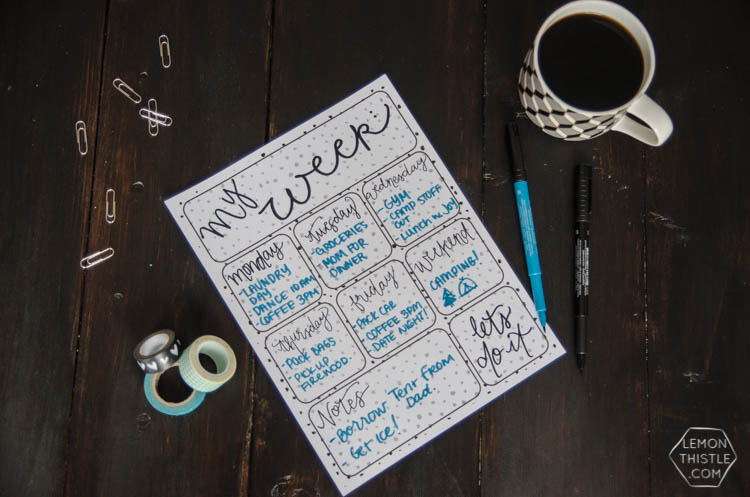 my week:
monday
-LAUNDRY
DAY
-DANCE 10AM
-COFFEE 3PM
tuesday
-GROCERIES
-MOM FOR
DINNER
wednesday
-GYM
-CAMP STUFF
OUT
-Lunch w Joy
thursday
-PACK BAGS
-PICK UP
FIREWOOD
friday
-PACK CAR
-COFFEE 3PM
-DATE NIGHT!
weekend
CAMPING!
Notes
-Borrow Tent From
Dad!
-Get ice!
let's
do it
LEMON
THISTLE
.COM